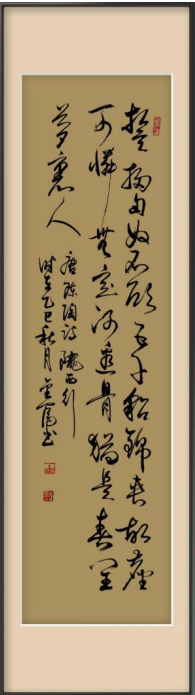 誓掃匈奴不顾身五千貂錦喪胡塵
可憐無定河邊骨猶是春閨
夢裏人
唐陳陶詩隴西行
时在乙巳秋月書